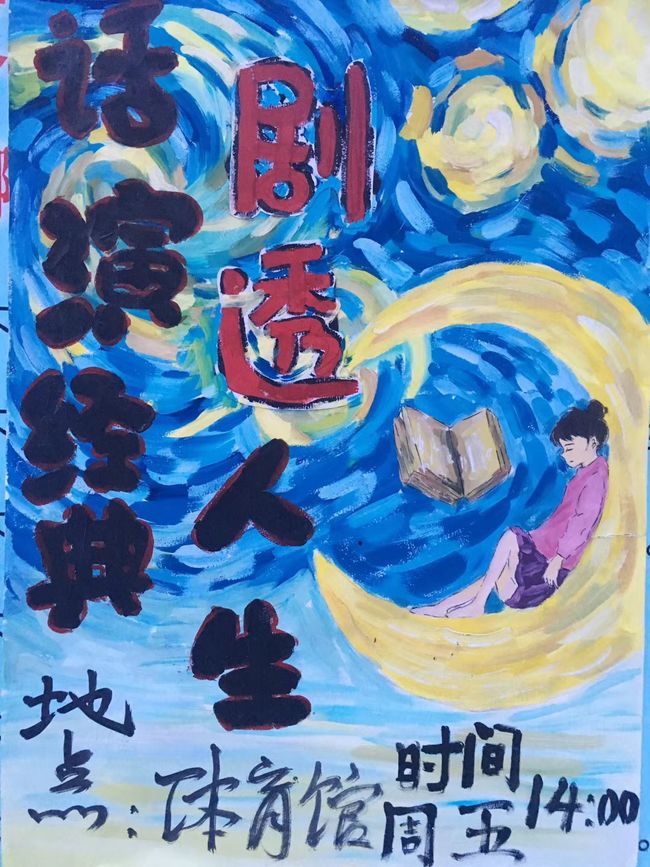 话演经典
剧透人生
地点：体育馆
时间
周五14:00